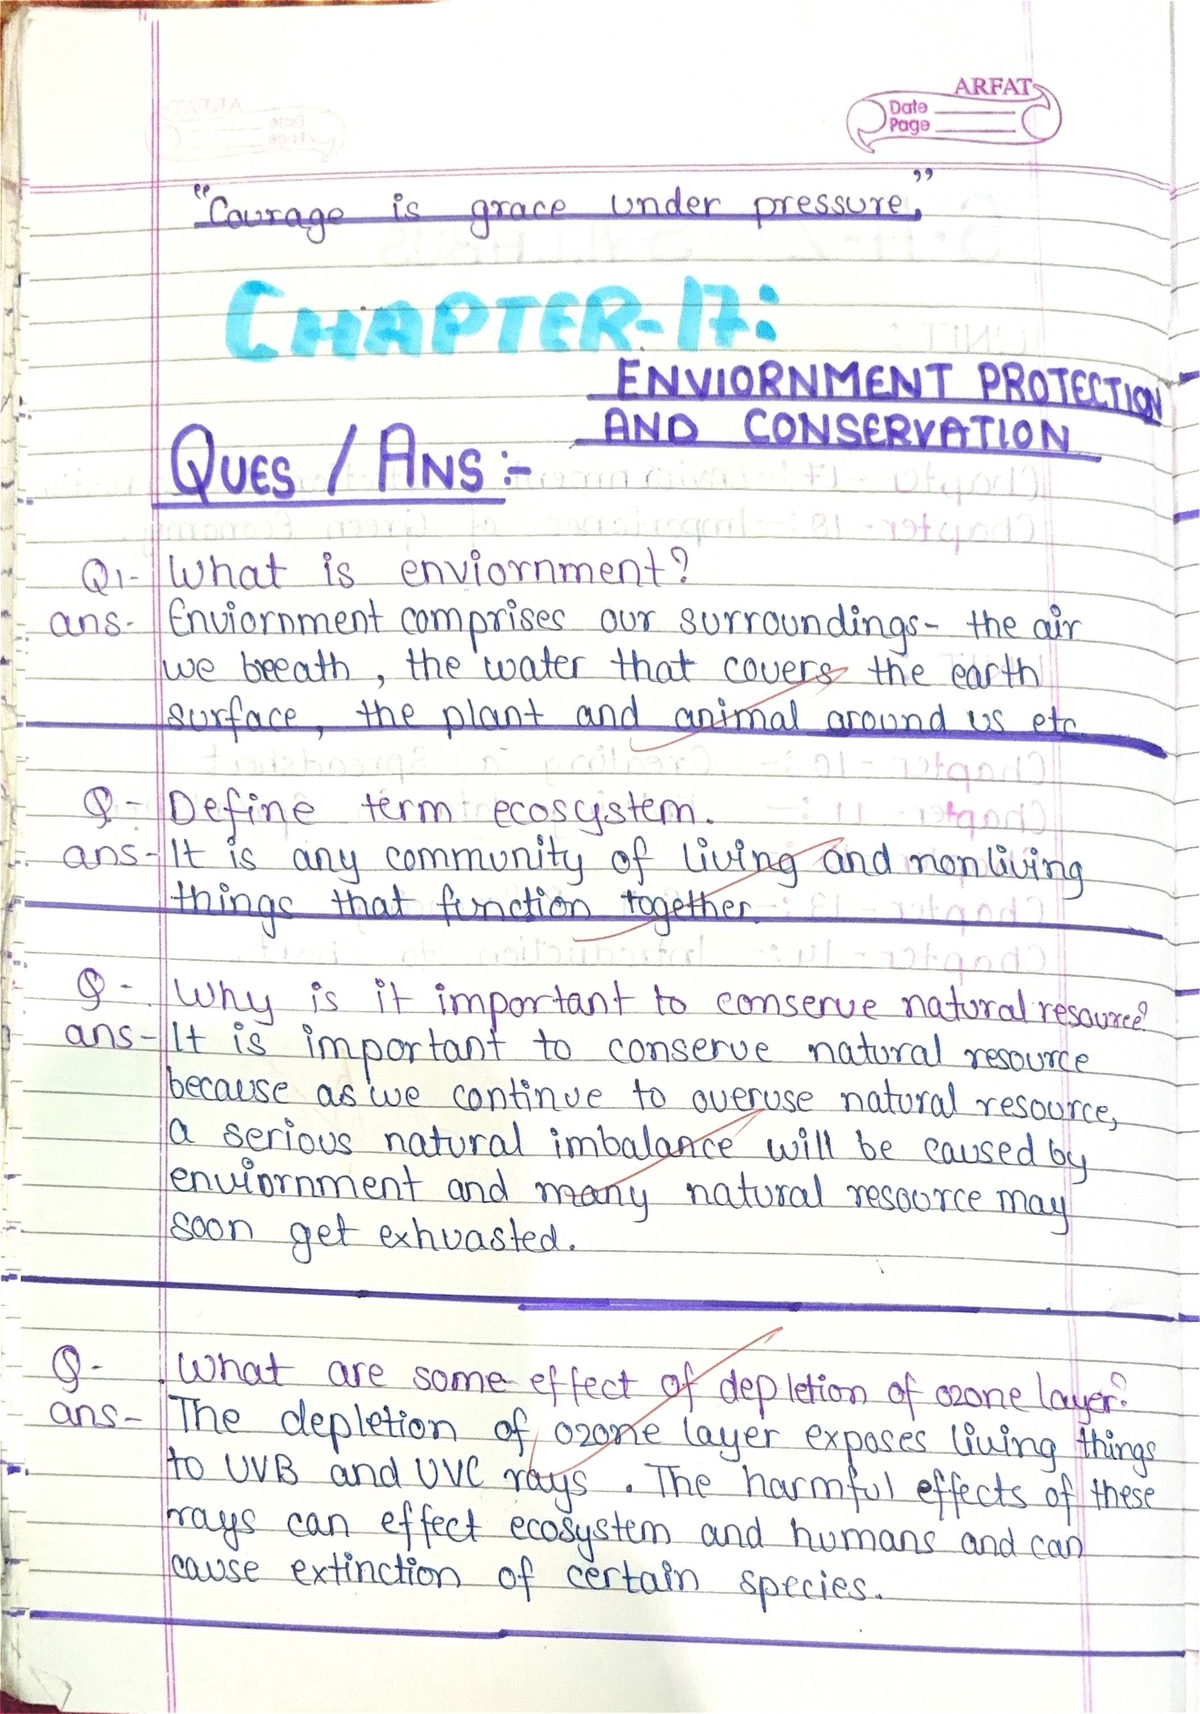 ARFAT
Date
Page
"Courage is grace under pressure,"
CHAPTER-17:
ENVIORNMENT PROTECTION
AND CONSERVATION
QUES / ANS :-
Q1- What is enviornment?
ans- Enviornment comprises our surroundings- the air
we breath, the water that covers the earth
surface, the plant and animal around us etc.
Q- Define term ecosystem.
ans- It is any community of living and nonliving
things that function together.
Q- Why is it important to conserve natural resource?
ans- It is important to conserve natural resource
because as we continue to overuse natural resource,
a serious natural imbalance will be caused by
enviornment and many natural resource may
soon get exhuasted.
Q- What are some effect of depletion of ozone layer?
ans- The depletion of ozone layer exposes living things
to UVB and UVC rays. The harmful effects of these
rays can effect ecosystem and humans and can
cause extinction of certain species.